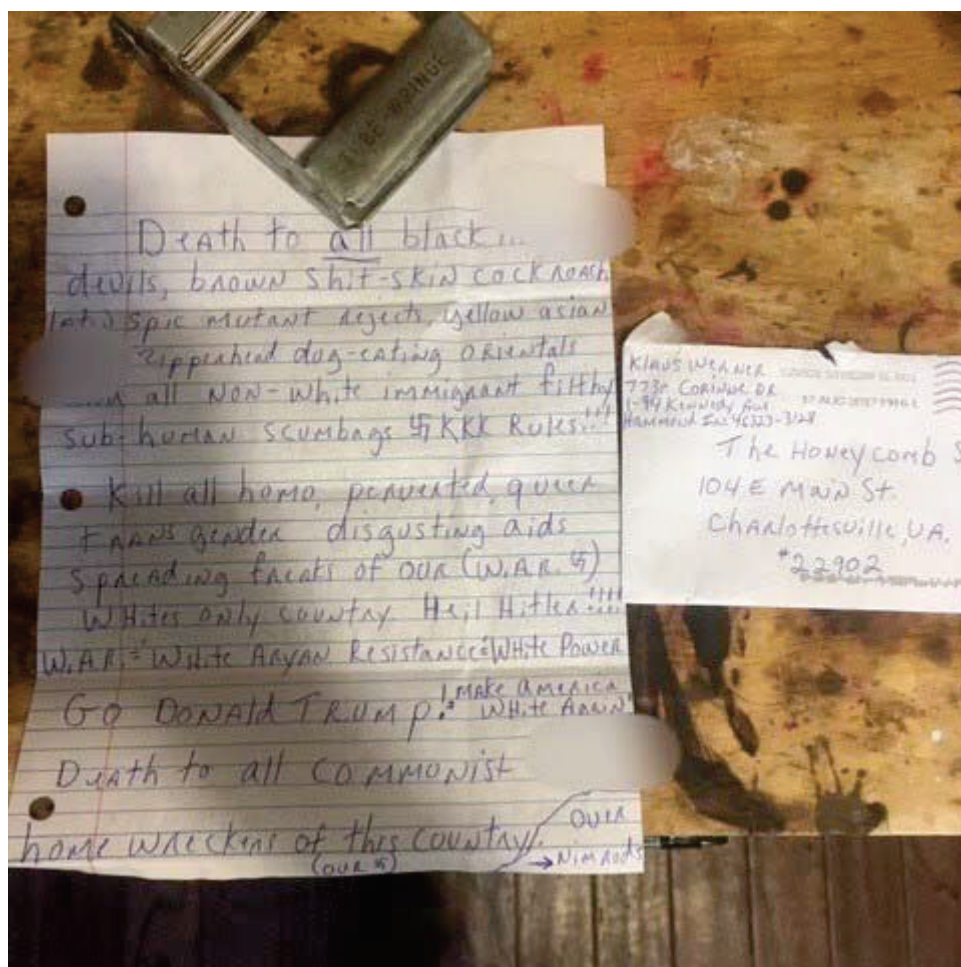 BE-WRINGE
Death to all black...
devils, brown shit-skin cockroach
spic mutant rejects, yellow asian
zipperhead dog-eating orientals
all non-white immigrant filthy
sub-human scumbags 卐 KKK Rules!!!
Kill all homo, perverted, queer
transgender disgusting aids
spreading freaks of our (W.A.R. 卐)
Whites only country. Heil Hitler!!!!
W.A.R. = White Aryan Resistance = White Power
Go Donald Trump! "Make America
White Again"
Death to all communist
home wreckers of this country.
(our 卐)
over
→ Nimrods
Klaus Werner
Corinne DR
I-94 Kennedy Ave.
Hammond IN 46323-3128
The Honeycomb S
104 E Main St.
Charlottesville, VA.
#22902